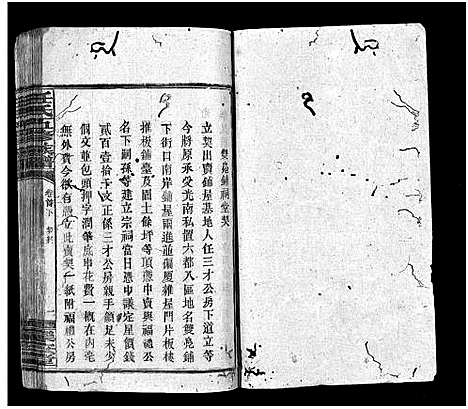 雙凫鋪祠堂契
立契出賣鋪屋基地人任三才公房下道立等
今將原承受光南私置六都八區地名雙凫鋪
下街口南岸鋪屋兩進並偏厦雜屋門片板樓
推板鋪臺及園土餘坪等項儘申賣與福禮公
名下嗣孫等建立宗祠當日憑申議定星價錢
貳百壹拾千文正係三才公房親手領足未少
個文並包頭押字潤筆底串花費一概在內毫
無外費今欲有憑立此賣契一紙附福禮公房
卷首下